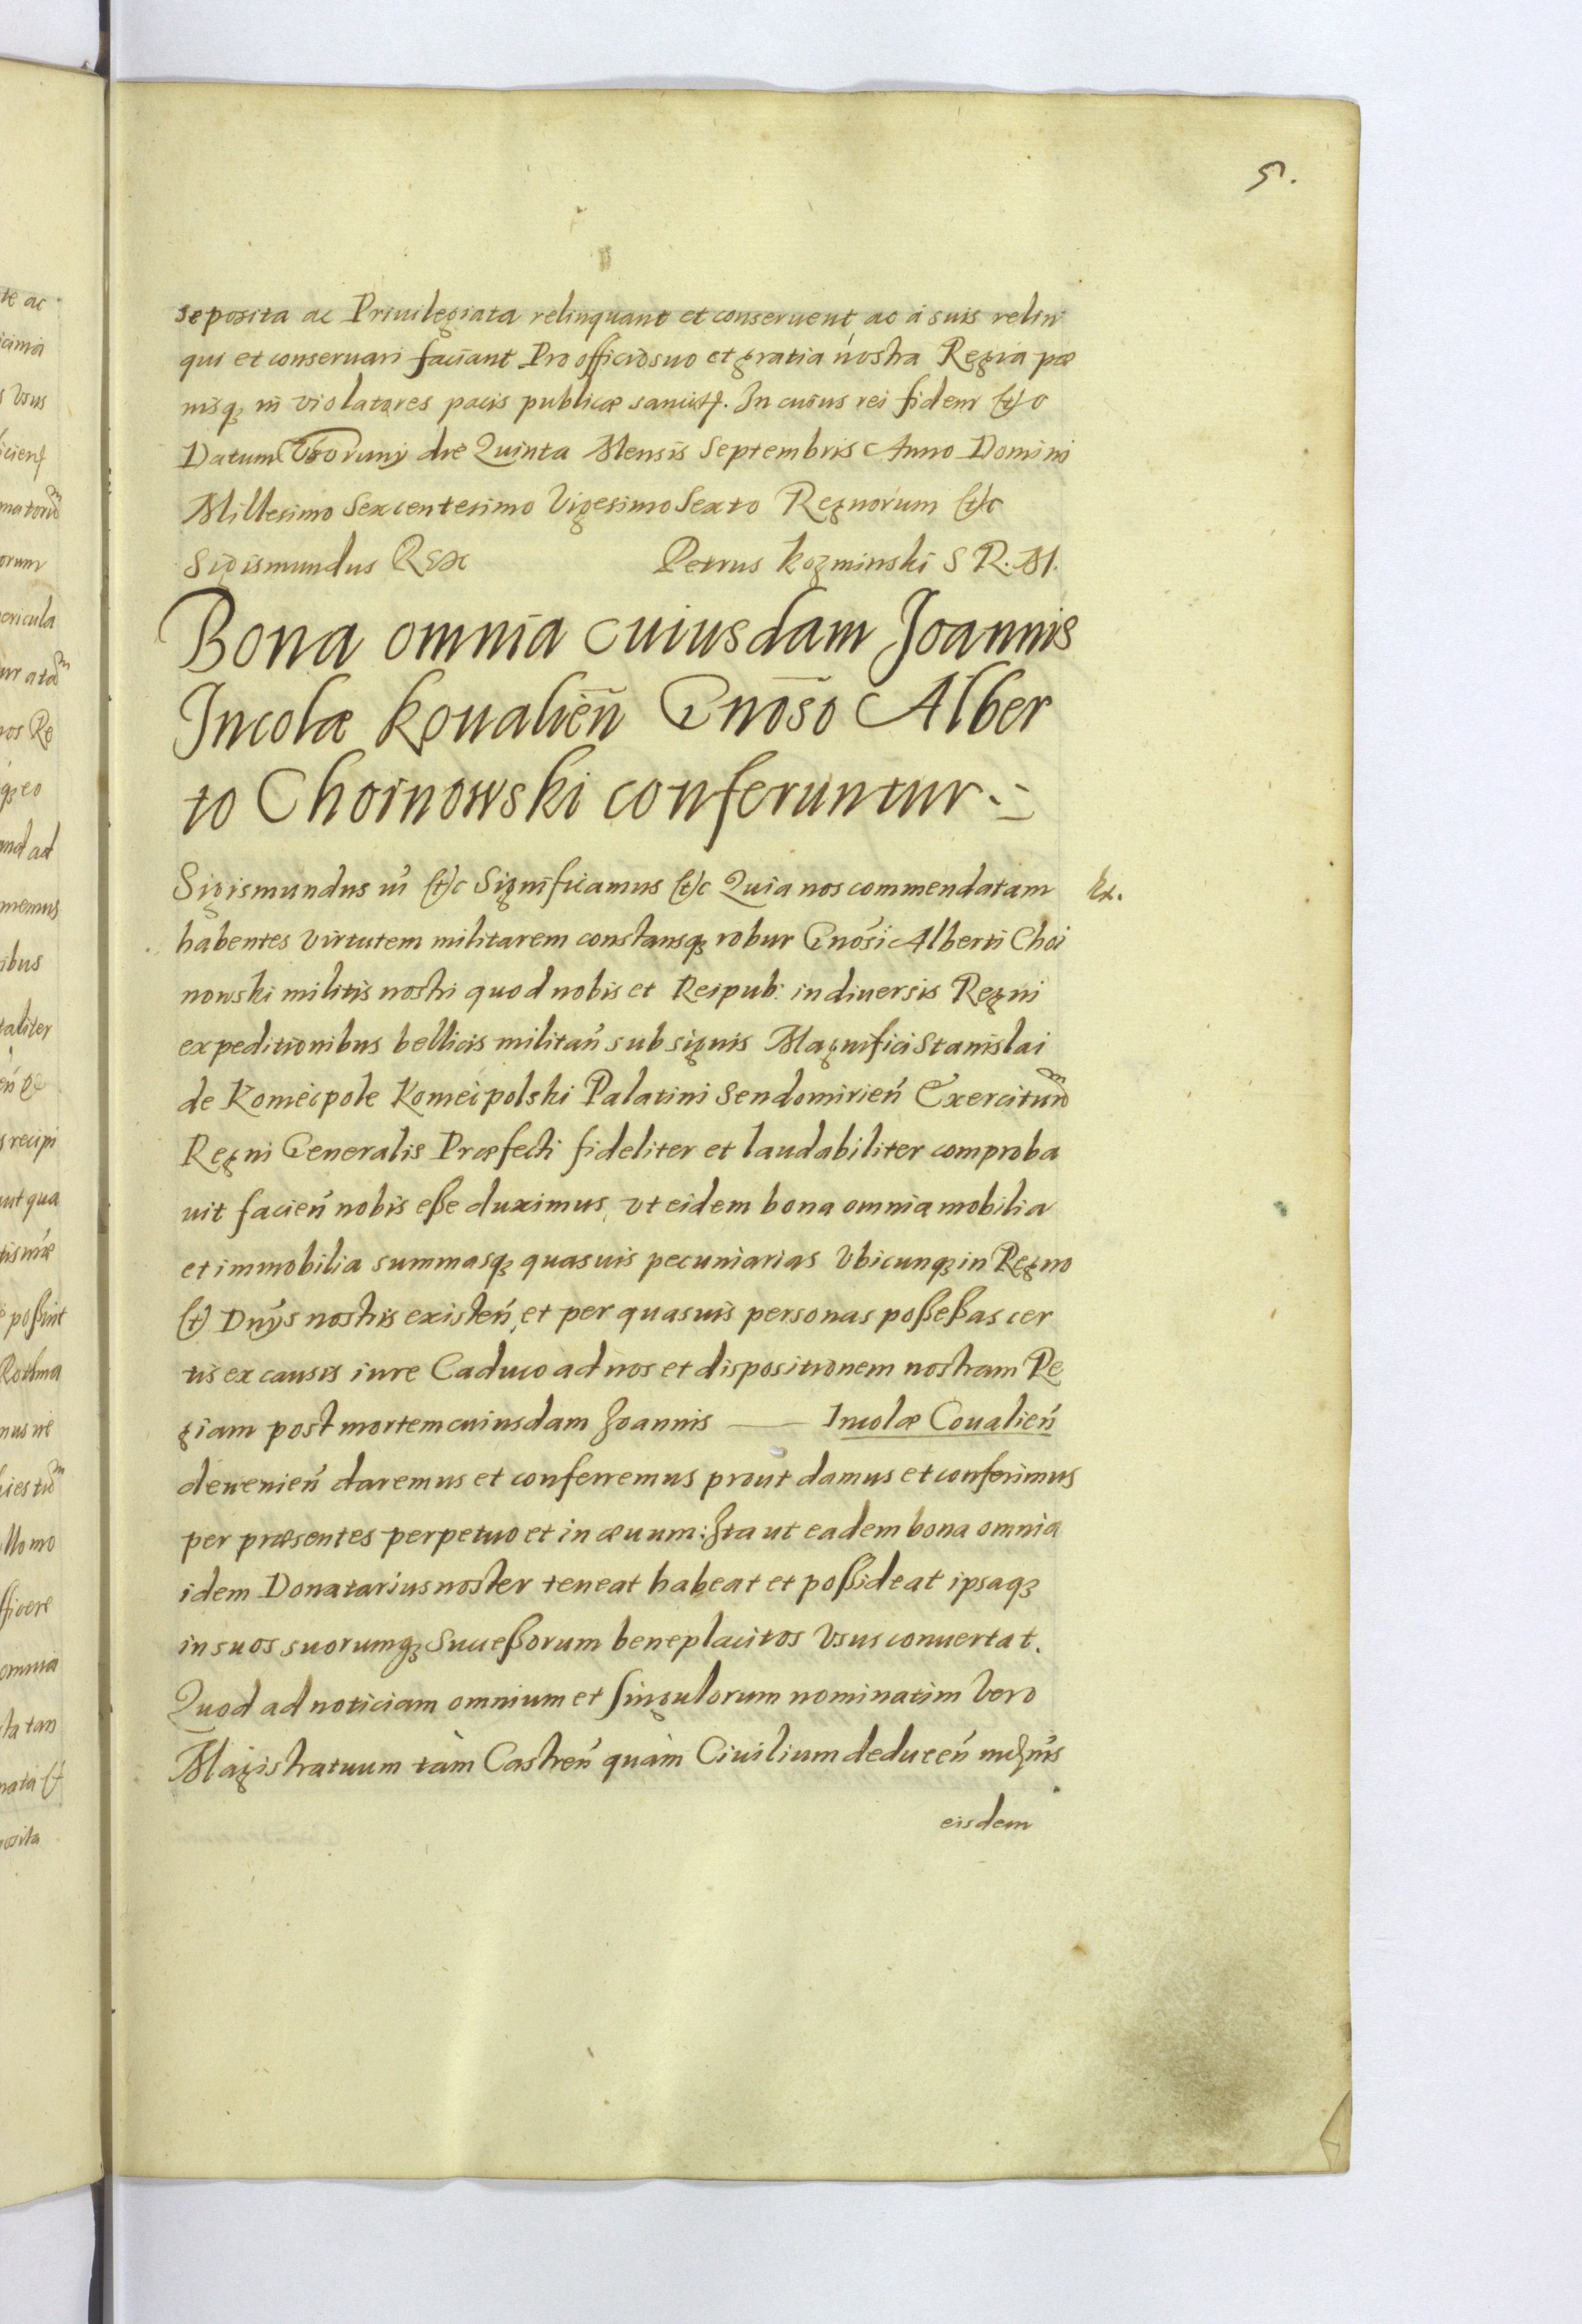 5.
seposita ac Priuilegiata relinquant et conseruent ac à suis relin
qui et conseruari faciant Pro officio suo et gratia nostra Regia pæ
nisq; in violatores pacis publicæ sancitis. In cuius rei fidem (t)c
Datum Thoruny die Quinta Mensis Septembris Anno Domini
Millesimo Sexcentesimo Vigesimo Sexto Regnorum (t)c
Sigismundus Rex Petrus Kozminski S R. M.
Bona omnia cuiusdam Joannis
Incolæ Koualien̄ Gnōso Alber
to Choinowski conferuntur
Sigismundus (t)c Significamus (t)c Quia nos commendatam
habentes virtutem militarem constansq; robur Gnōsi Alberti Choi
nowski militis nostri quod nobis et Reipub: in diuersis Regni
expeditionibus bellicis militan̄ sub signis Magnifici Stanislai
de Koniecpole Koniecpolski Palatini Sendomirien̄ Exercituum
Regni Generalis Præfecti fideliter et laudabiliter comproba
uit facien̄ nobis eße duximus, vt eidem bona omnia mobilia
et immobilia summasq; quasuis pecuniarias Vbicunq; in Regno
(t) Dnÿs nostris existen̄, et per quasuis personas poßeßas cer
tis ex causis iure Caduco ad nos et dispositionem nostram Re
giam post mortem cuiusdam Joannis —— Incolæ Coualien̄
deuenien̄ daremus et conferremus prout damus et conferimus
per præsentes perpetuo et in æuum: Ita ut eadem bona omnia
idem Donatarius noster teneat habeat et poßideat ipsaq;
in suos suorumq; Succeßorum beneplacitos Vsus conuertat.
Quod ad noticiam omnium et singulorum nominatim Vero
Magistratuum tàm Castren̄ quàm Ciuilium deducen̄
eisdem